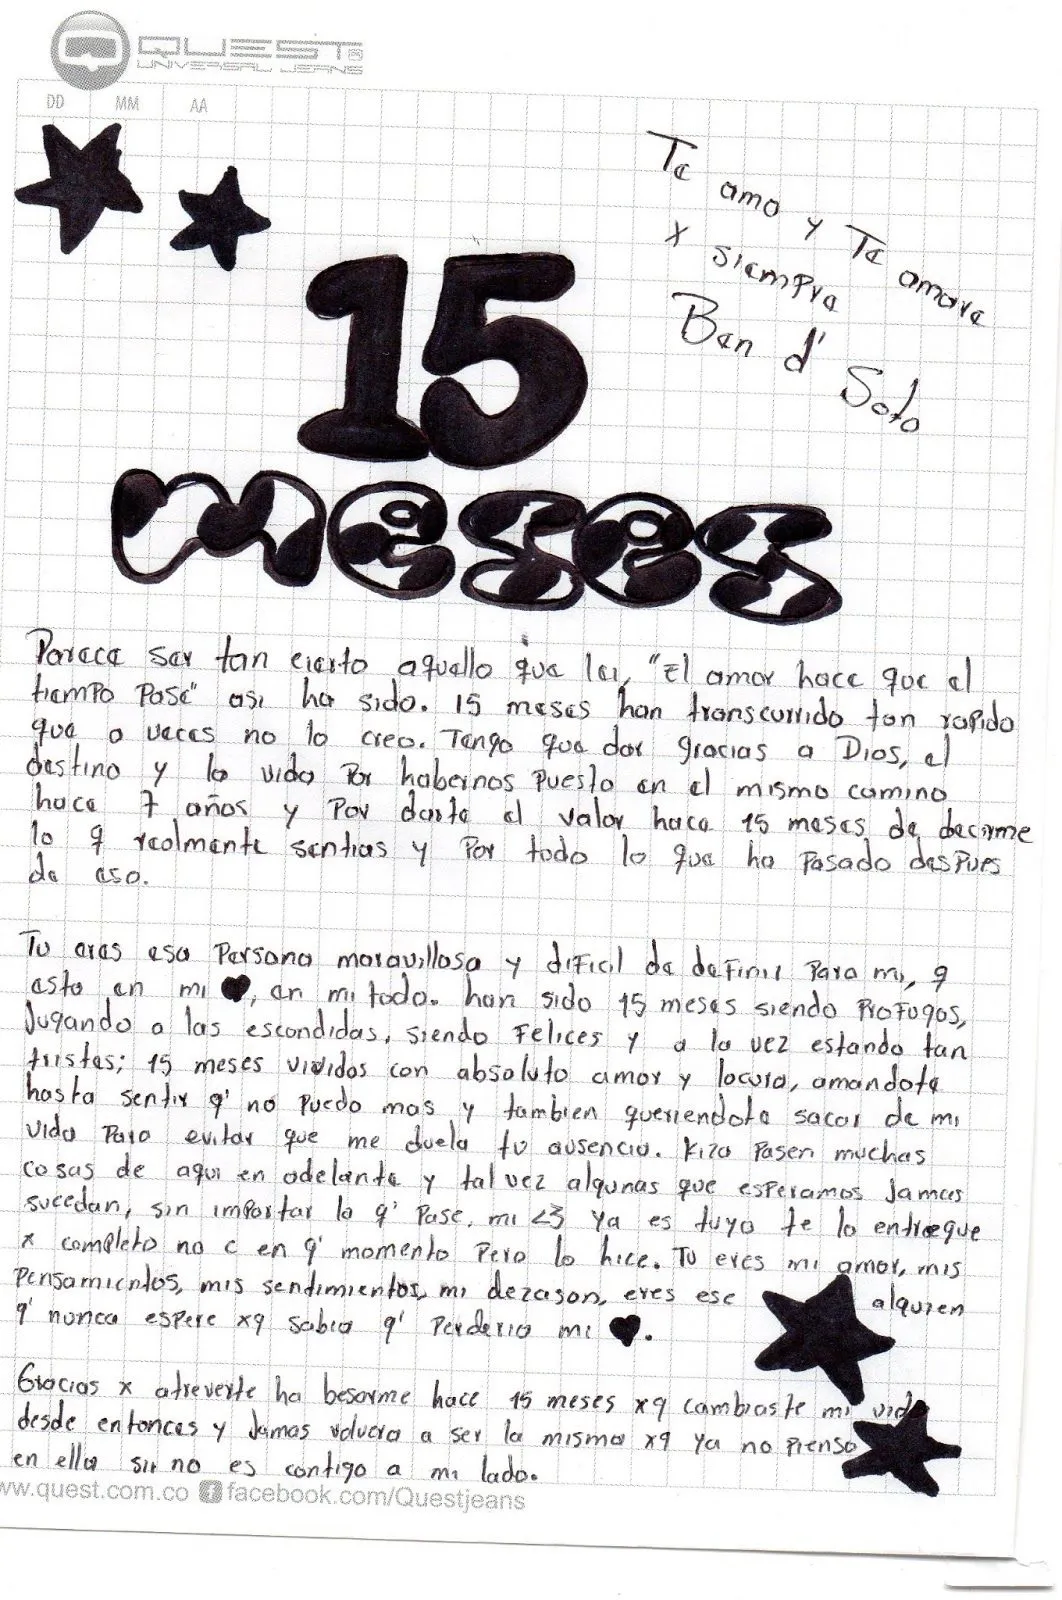 QUEST
UNIVERSAL JEANS
DD MM AA
Te amo y Te amare
x siempre
Ben d' Soto
15
meses
Parece ser tan cierto aquello que leí, "El amor hace que el
tiempo pase" asi ha sido. 15 meses han transcurrido tan rapido
que a veces no lo creo. Tengo que dar gracias a Dios, el
destino y la vida por habernos puesto en el mismo camino
hace 7 años y por darte el valor hace 15 meses de decirme
lo q realmente sentias y por todo lo que ha pasado despues
de eso.
Tu eres esa persona maravillosa y dificil de definir para mi, q
esta en mi ♥, en mi todo. han sido 15 meses siendo profugos,
Jugando a las escondidas, siendo felices y a la vez estando tan
tristes; 15 meses vividos con absoluto amor y locura, amandote
hasta sentir q' no puedo mas y tambien queriendote sacar de mi
vida para evitar que me duela tu ausencia. Kiza pasen muchas
cosas de aqui en adelante y tal vez algunas que esperamos Jamas
sucedan, sin importar lo q' pase, mi <3 ya es tuyo te lo entregue
x completo no c en q' momento pero lo hice. Tu eres mi amor, mis
pensamientos, mis sendimientos, mi dezason, eres ese alguien
q' nunca espere xq sabia q' perderia mi ♥.
Gracias x atreverte ha besarme hace 15 meses xq cambiaste mi vida
desde entonces y Jamas volvera a ser la misma xq ya no pienso
en ella si no es contigo a mi lado.
ww.quest.com.co f facebook.com/Questjeans